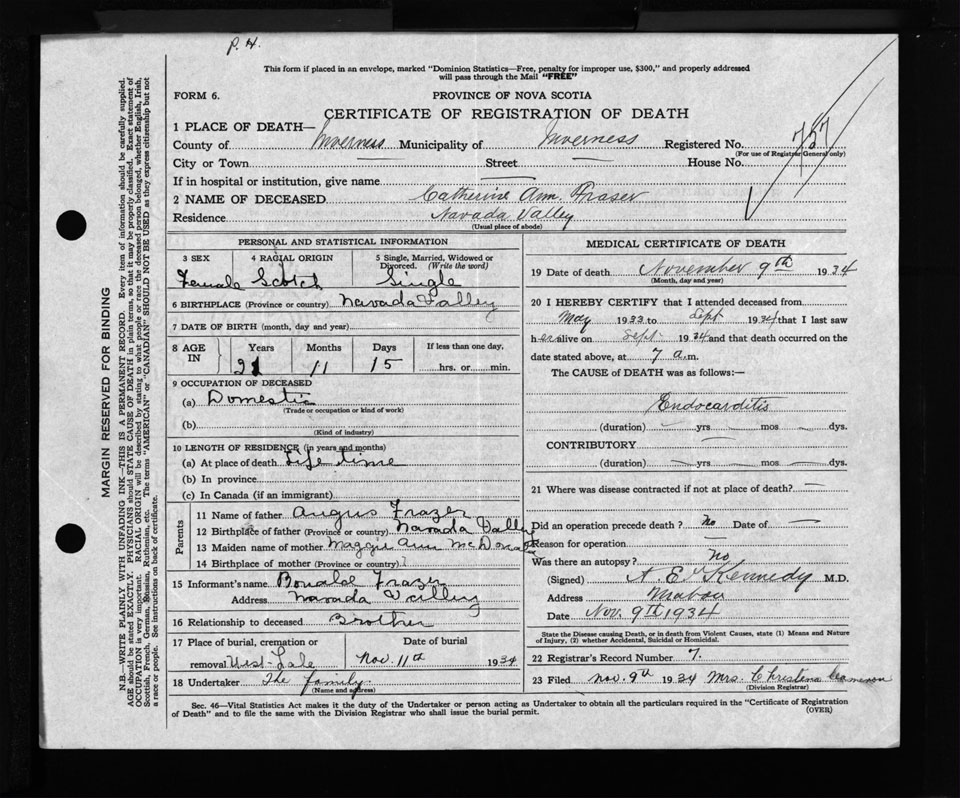 P. H.
This form if placed in an envelope, marked "Dominion Statistics—Free, penalty for improper use, $300," and properly addressed
will pass through the Mail "FREE"
FORM 6.
PROVINCE OF NOVA SCOTIA
CERTIFICATE OF REGISTRATION OF DEATH
1 PLACE OF DEATH—
County of Inverness Municipality of Inverness Registered No. 757
(For use of Registrar General only)
City or Town — Street — House No.
If in hospital or institution, give name —
2 NAME OF DECEASED Catherine Ann Fraser
Residence Navada Valley
(Usual place of abode)
PERSONAL AND STATISTICAL INFORMATION
3 SEX 4 RACIAL ORIGIN 5 Single, Married, Widowed or
Divorced. (Write the word)
Female Scotch Single
6 BIRTHPLACE (Province or country) Navada Valley
7 DATE OF BIRTH (month, day and year)
8 AGE IN Years Months Days If less than one day,
21 11 15 hrs. or min.
9 OCCUPATION OF DECEASED
(a) Domestic
(Trade or occupation or kind of work)
(b)
(Kind of industry)
10 LENGTH OF RESIDENCE (in years and months)
(a) At place of death Life time
(b) In province
(c) In Canada (if an immigrant)
Parents
11 Name of father Angus Frazer
12 Birthplace of father (Province or country) Navada Valley
13 Maiden name of mother Maggie Ann McDonald
14 Birthplace of mother (Province or country)
15 Informant's name Frazer
Address Navada Valley
16 Relationship to deceased Brother
17 Place of burial, cremation or Date of burial
removal West-Lale Nov. 11th 1934
18 Undertaker The family
(Name and address)
MEDICAL CERTIFICATE OF DEATH
19 Date of death November 9th 1934
(Month, day and year)
20 I HEREBY CERTIFY that I attended deceased from
May 1933 to Sept 1934 that I last saw
her alive on Sept 1934 and that death occurred on the
date stated above, at 7 a.m.
The CAUSE of DEATH was as follows:—
Endocarditis
(duration) — yrs — mos — dys.
CONTRIBUTORY —
(duration) — yrs — mos — dys.
21 Where was disease contracted if not at place of death? —
Did an operation precede death? No Date of —
Reason for operation —
Was there an autopsy? No
(Signed) A E Kennedy M.D.
Address Mabou
Date Nov. 9th 1934
State the Disease causing Death, or in death from Violent Causes, state (1) Means and Nature
of Injury, (2) whether Accidental, Suicidal or Homicidal.
22 Registrar's Record Number 7.
23 Filed Nov. 9th 1934 Mrs. Christena Cameron
(Division Registrar)
Sec. 46—Vital Statistics Act makes it the duty of the Undertaker or person acting as Undertaker to obtain all the particulars required in the "Certificate of Registration
of Death" and to file the same with the Division Registrar who shall issue the burial permit.
(OVER)
MARGIN RESERVED FOR BINDING
N.B.—WRITE PLAINLY WITH UNFADING INK—THIS IS A PERMANENT RECORD. Every item of information should be carefully supplied.
AGE should be stated EXACTLY. PHYSICIANS should STATE CAUSE OF DEATH in plain terms, so that it may be properly classified. Exact statement of
OCCUPATION is very important. RACIAL ORIGIN will be described by stating to what people or race the deceased person belonged, whether English, Irish,
Scottish, French, German, Russian, Ruthenian, etc. The terms "AMERICAN" or "CANADIAN" SHOULD NOT BE USED as they express citizenship but not
a race or people. See instructions on back of certificate.